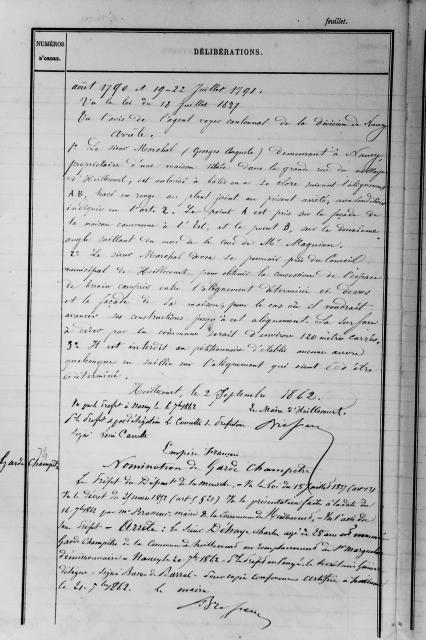 feuillet.
NUMÉROS D'ORDRE.
DÉLIBÉRATIONS.
août 1790 et 19-22 Juillet 1791.
Vu la loi du 18 Juillet 1837
Vu l'avis de l'agent voyer cantonal de la division de Nancy
Arrête:
1° Le sieur Marchal (Georges Auguste) demeurant à Nancy
propriétaire d'une maison située dans la grande rue du village
d'Heillecourt, est autorisé à bâtir ou se clore suivant l'alignement
AB, tracé en rouge au plan joint au présent arrêté, aux conditions
indiquées en l'art. 2. Le point A est pris sur la façade de
la maison commune à l'Est, et le point B, sur le deuxième
angle saillant du mur de le coté de Mr. Magnien.
2° Le sieur Marchal devra se pourvoir près du Conseil
municipal de Heillecourt, pour obtenir la concession de l'espace
de terrain compris entre l'alignement déterminé ci dessus
et la façade de la maison, pour le cas où il voudrait
avancer ses constructions jusqu'à cet alignement. La surface
à céder par la commune serait d'environ 120 mètres carrés.
3° Il est interdit au pétitionnaire d'établir aucune œuvre
quelconque en saillie sur l'alignement qui vient d'être
déterminé.
Heillecourt, le 2 Septembre 1862.
Vu par le Préfet à Nancy le 6 7bre 1862
Le Maire d'Heillecourt.
Pr le Préfet et par délégation le Conseiller de Préfecture
Signé
Empire Français
74
Garde Champêtre
Nomination de Garde Champêtre
Le Préfet du Départ de la Meurthe, - Vu la Loi du 18 Juillet 1837 (art 13)
Vu le Décret du 25 mars 1852 (art 5 §21) Vu la présentation faite à la date du
16 7bre 1862 par Mr Brasseur maire de la Commune de Heillecourt, - Vu l'avis du
Sous Préfet - Arrête: Le Sieur Charles agé de 28 ans est nommé
Garde Champêtre de la Commune de heillecourt en remplacement du Sr
démissionnaire - Nancy le 20 7bre 1862. Pr le Préfet en congé le Secrétaire général
délégué - Signé Baron de Barral - Pour copie conforme Certifiée à heillecourt
le 21. 7bre 1862.
le maire